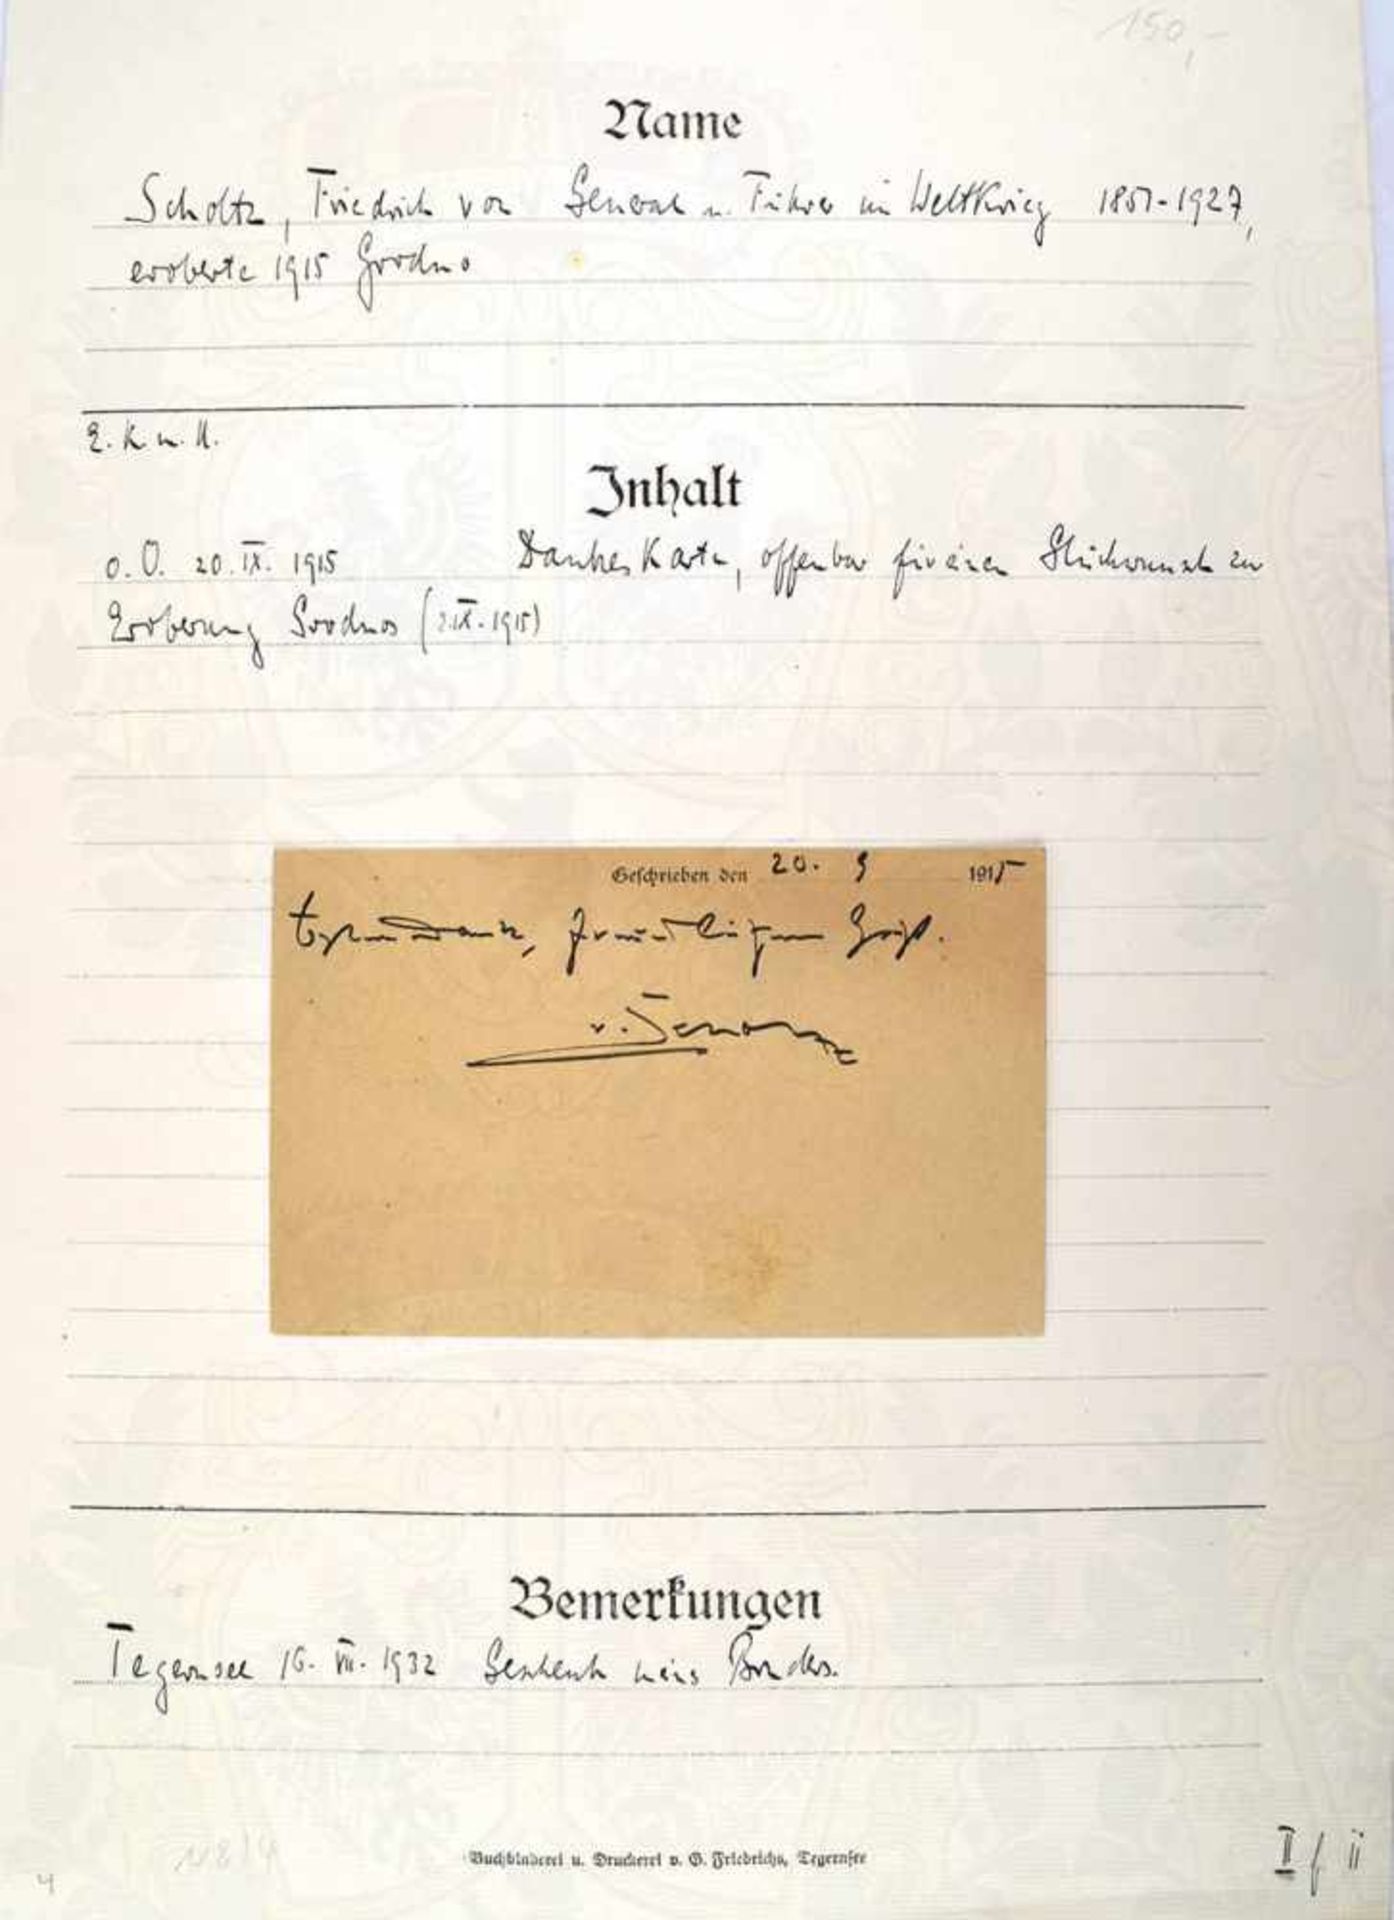 150,-
Name
Scholtz, Friedrich von General u. Führer im Weltkrieg 1851-1927,
eroberte 1915 Grodno
E. K. u. U.
Inhalt
o. O. 20. IX. 1915 Dankeskarte, offenbar für einen Glückwunsch zu
Eroberung Grodnos (2.IX.1915)
Geschrieben den 20. 9 1915
Dank, freundlichen Gruß.
v. Scholtz
Bemerkungen
Tegernsee 16. VII. 1932 Geschenk meines Bruders.
Buchbinderei u. Druckerei v. G. Friedrichs, Tegernsee
II f ii
4